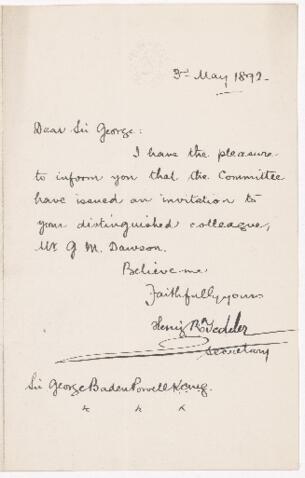 3rd May 1892.
Dear Sir George:
I have the pleasure
to inform you that the Committee
have issued an invitation to
your distinguished colleague,
Mr G M. Dawson.
Believe me
Faithfully yours
Henry R Tedder
Secretary
Sir George Baden Powell K.C.M.G.
x x x